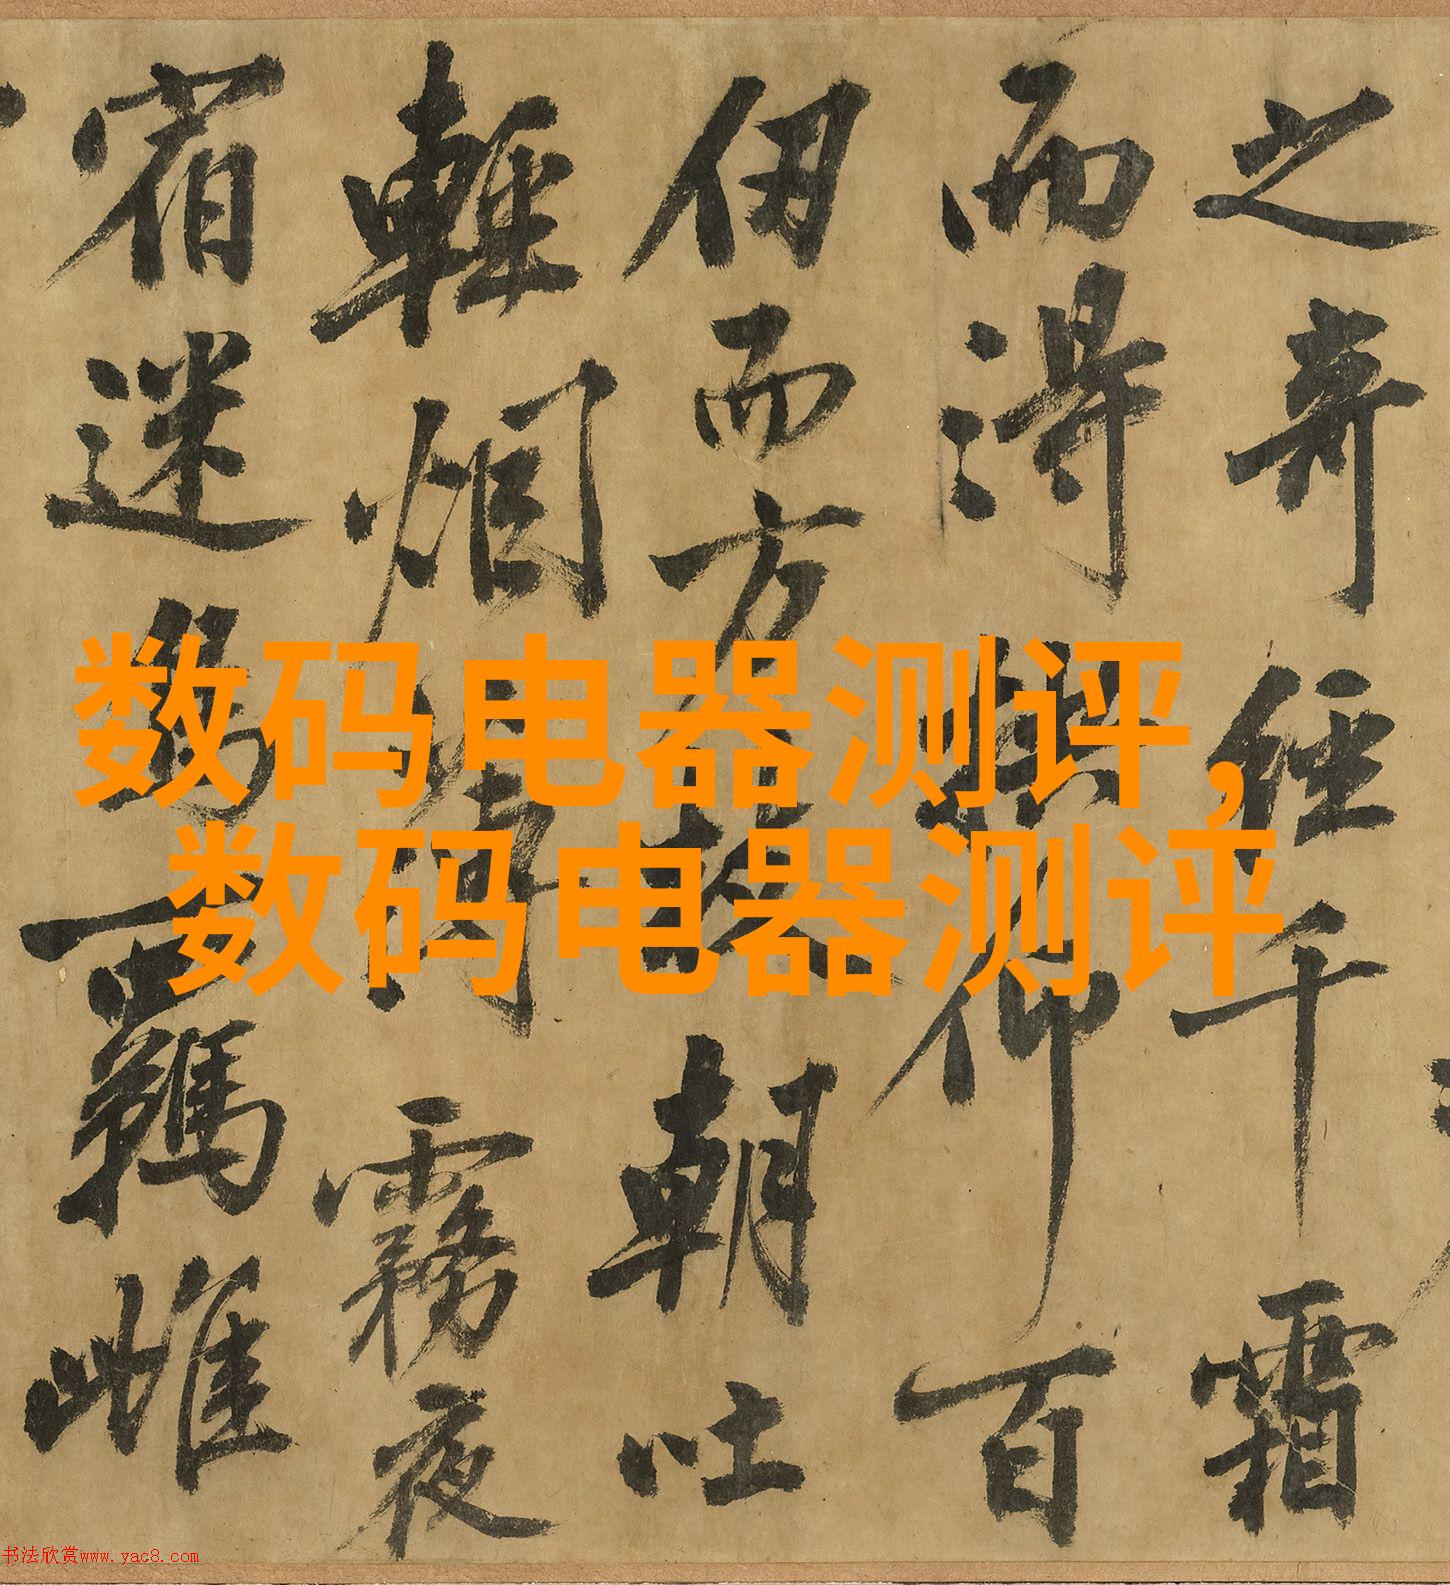 之奇經千霜
而得仰百
仞而方朝吐
輕烟霧夜
宿迷羈雌
数码电器测评，
数码电器测评
书法欣赏www.yac8.com